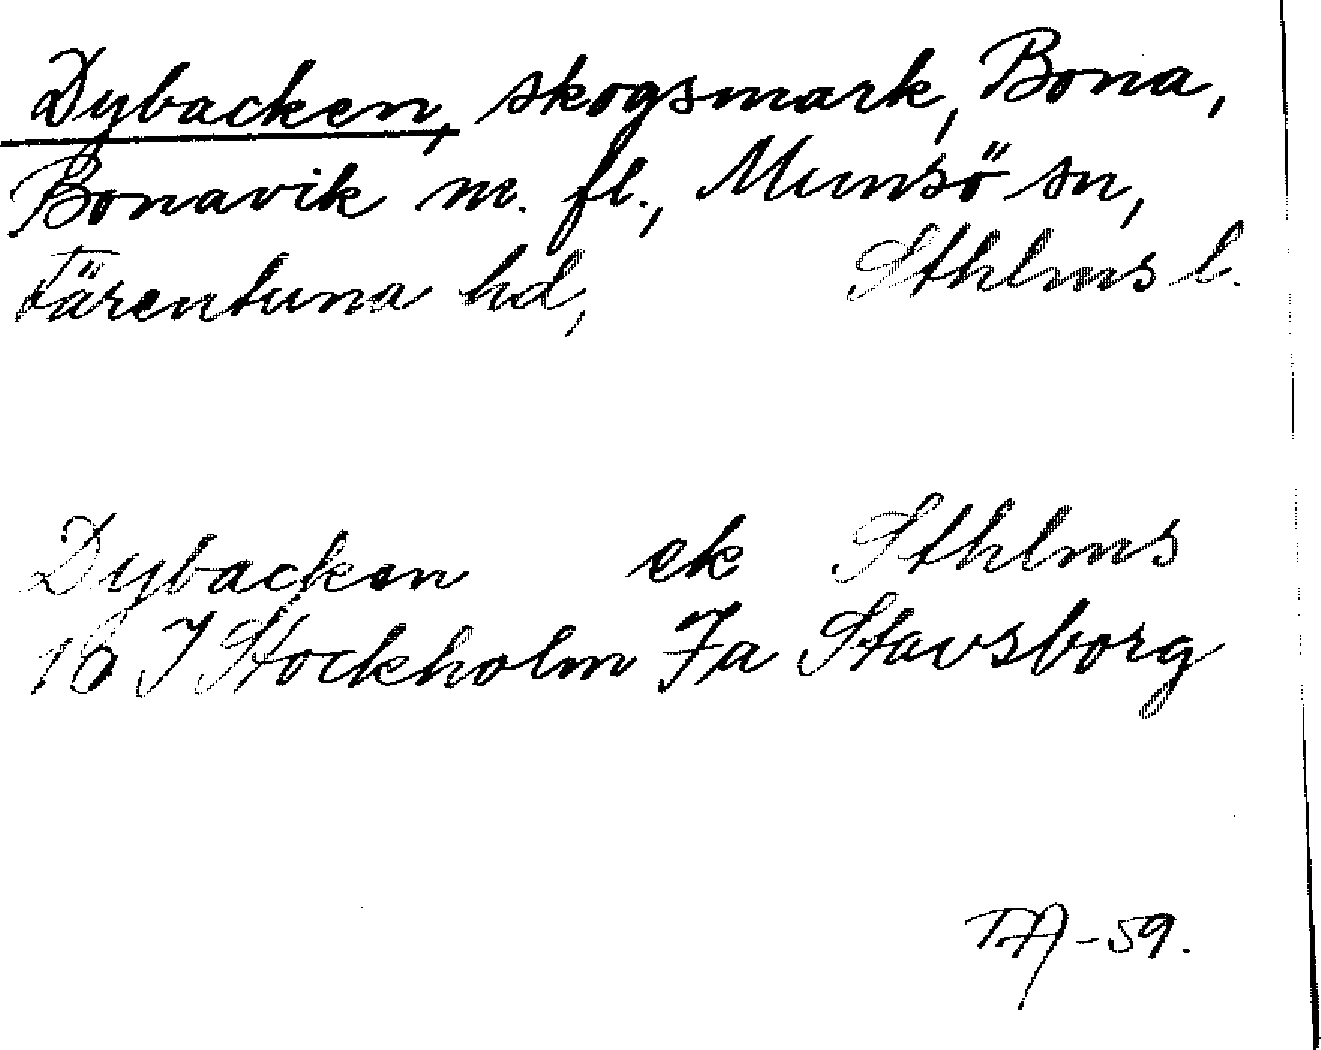 Dybacken, skogsmark, Bona,
Bonavik m. fl., Munsö sn,
Färentuna hd, Sthlms l.
Dybacken ek Sthlms
10 I Stockholm 7a Stavsborg
-59.